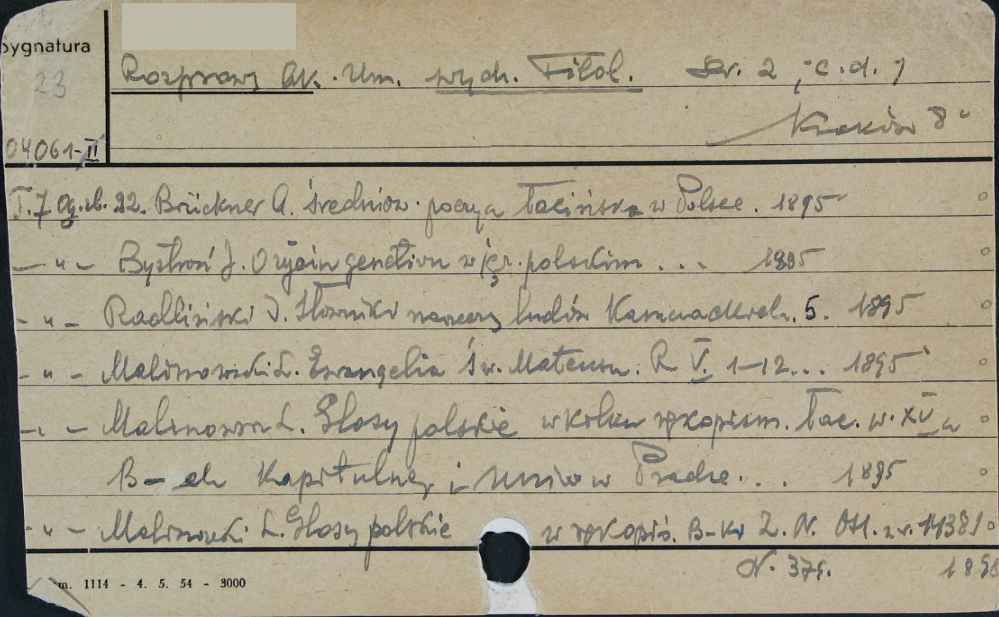 Sygnatura
23
04061-II
Rozprawy Ak. Um. wydz. Filol. Ser. 2 ; c. d. 7
Kraków 8°
T. 7 Og. zb. 22. Brückner A. Średniow. poezya łacińska w Polsce. 1895
— " — Bystroń J. O użyciu genetivu w jęz. polskim ... 1895
— " — Radliński I. Słowniki narzeczy ludów Kamczackich. 5. 1895
— " — Malinowski L. Ewangelia św. Mateusza. R V. 1-12... 1895
— " — Malinowski L. Glosy polskie w kilku rękopism. łac. w. XV
B-ch Kapitulnej i Uniw w Pradze... 1895
— " — Malinowski L. Glosy polskie w rękopiś. B-ki Z. N. Oss.
N. 379. 1895
m. 1114 - 4. 5. 54 - 3000